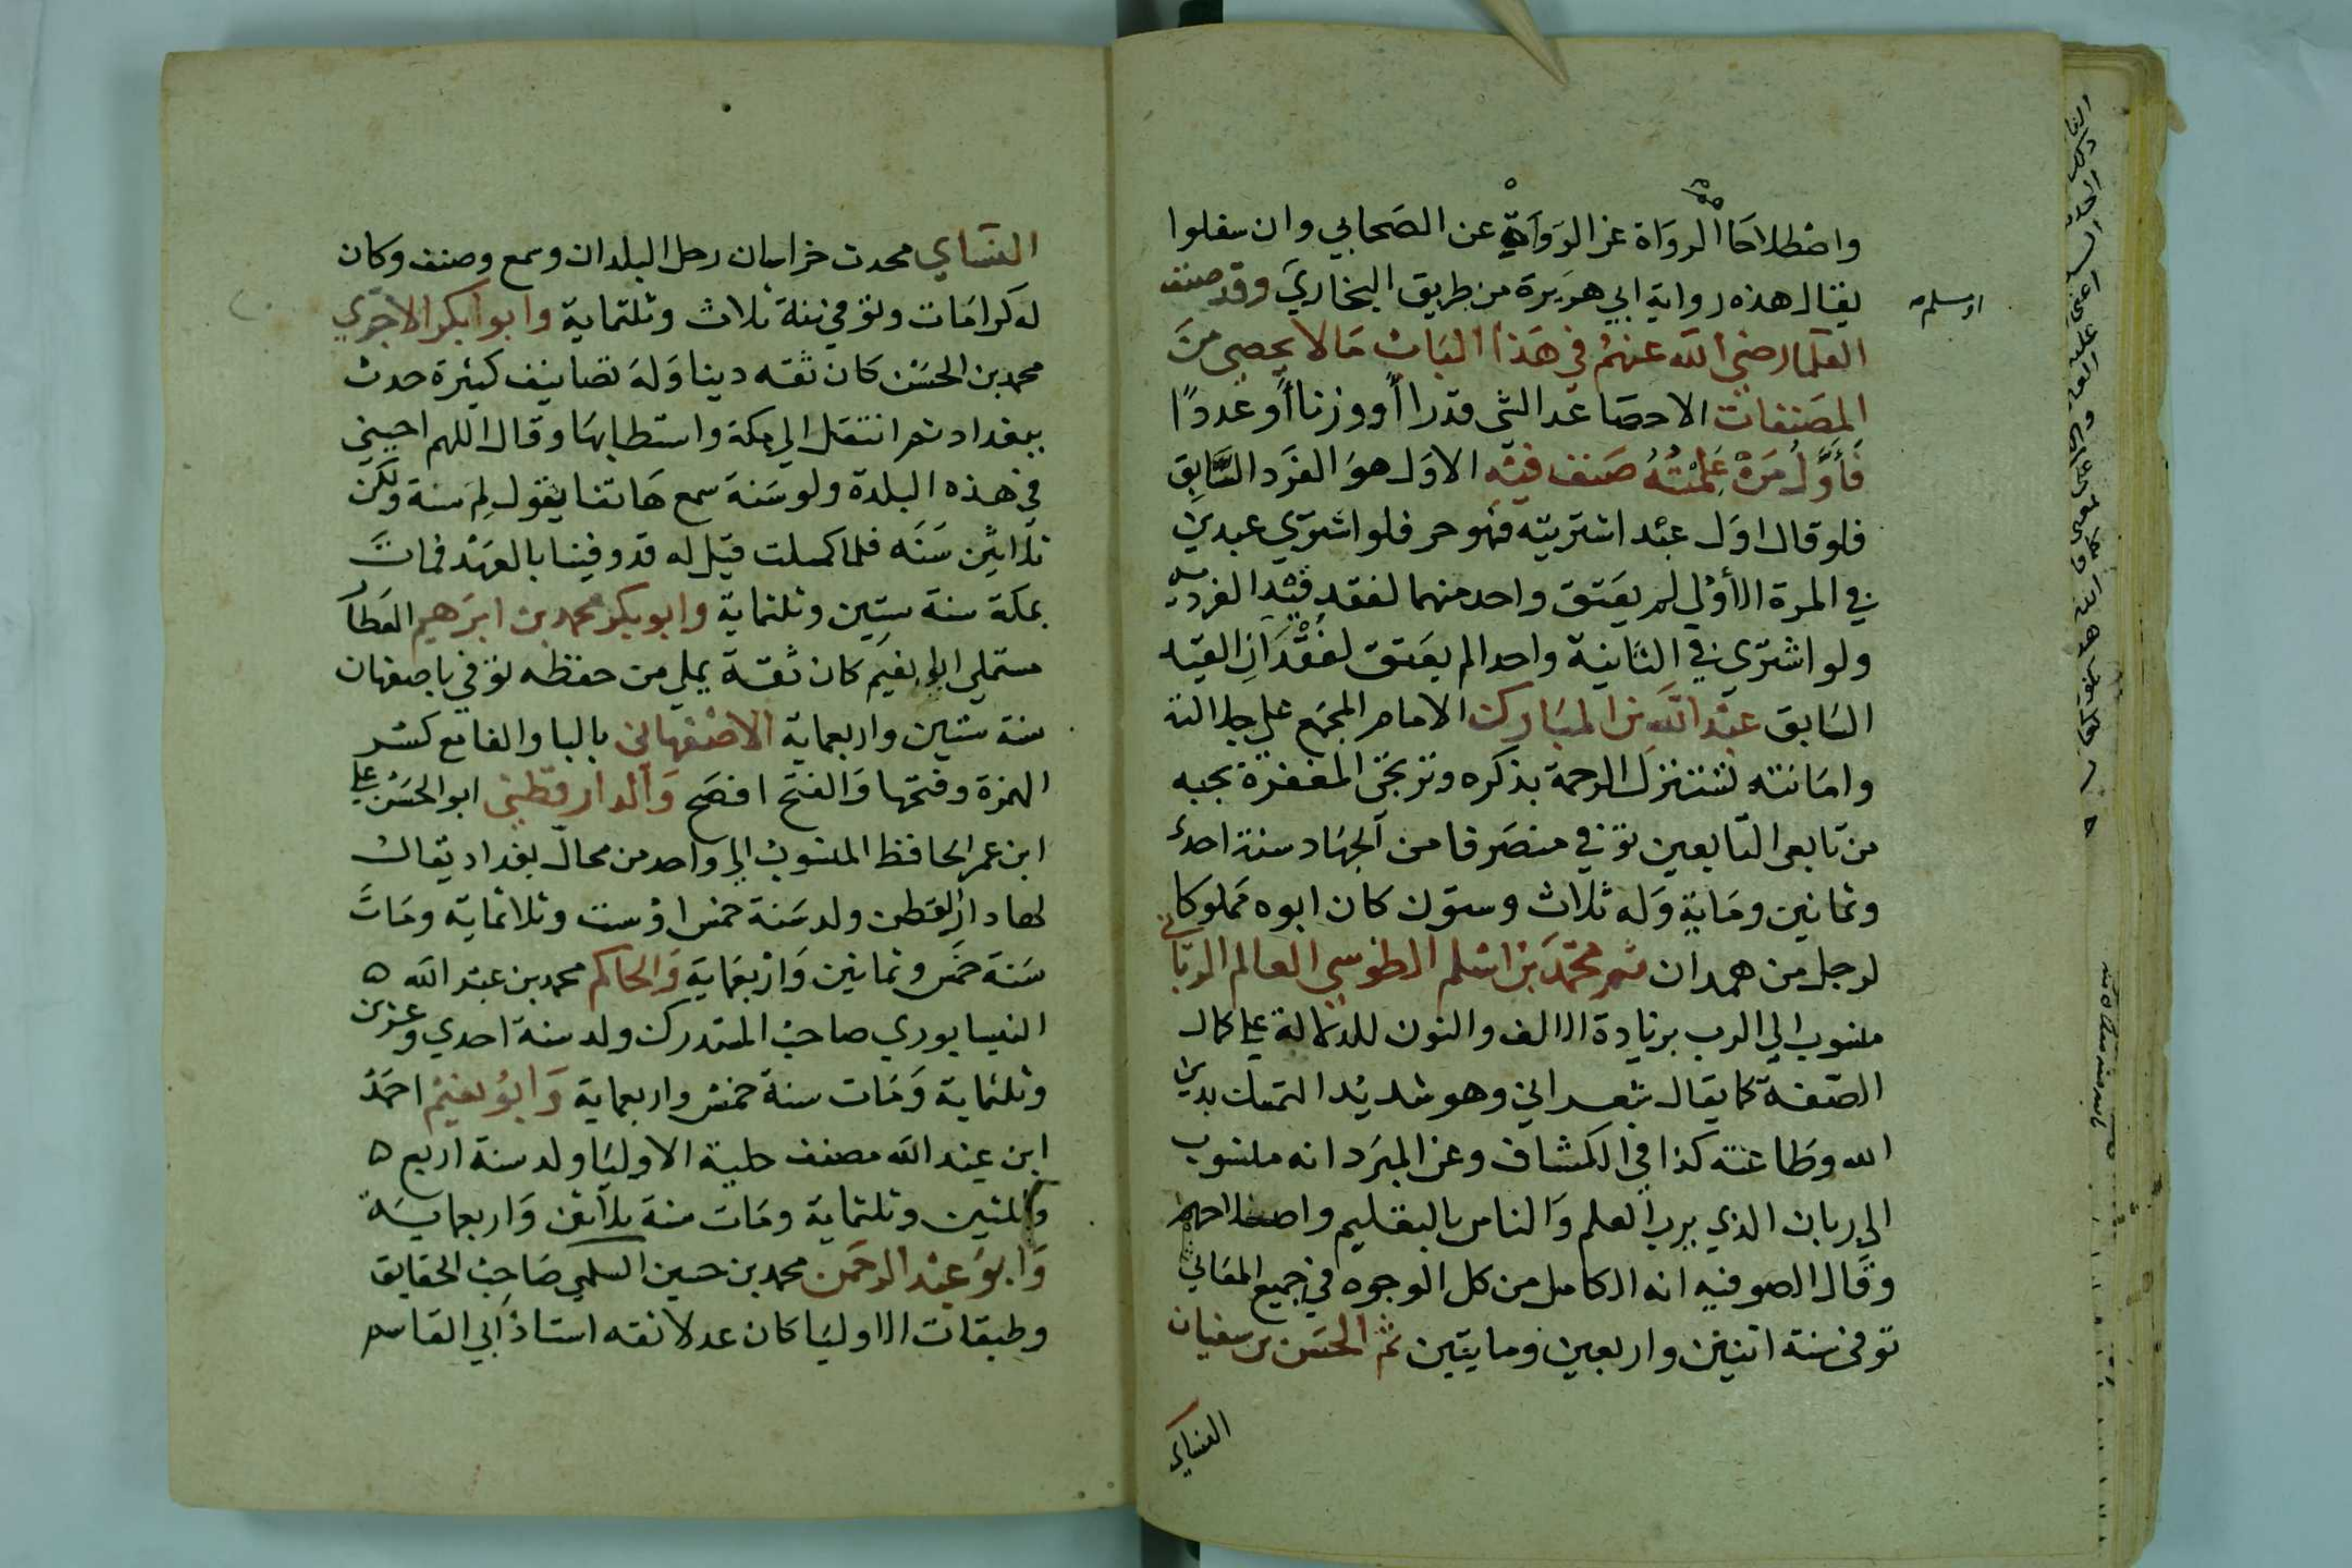 واصطلاحا الرواة عن الرواة عن الصحابي وان سفلوا
يقال هذه رواية ابي هريرة من طريق البخاري وقد صنف
او مسلم
العلما رضي الله عنهم في هذا الباب مالا يحصى من
المصنفات الاحصا عد الشي قدرا أو وزنا أو عددًا
فَأَوَّلُ مَنْ عَلِمْتُهُ صنف فيه الاول هو الفرد السابق
فلو قال اول عبد اشتريته فهو حر فلو اشتري عبدين
في المرة الأولي لم يعتق واحد منهما لفقد قيد الفردية
ولو اشتري في الثانية واحدا لم يعتق لفقدان القيد
السابق عبد الله بن المبارك الامام المجمع علي جلالته
وامانته تستنزل الرحمة بذكره وترتجى المغفرة بحبه
من تابعى التابعين توفي منصرفا من الجهاد سنة احدى
وثمانين ومايه وله ثلاث وستون كان ابوه مملوكا
لرجل من همدان ثم محمد بن اسلم الطوسي العالم الرباني
منسوب الي الرب بزيادة الالف والنون للدلالة علي كمال
الصفة كما يقال شعراني وهو شديد التمسك بدين
الله وطاعته كذا في الكشاف وعن المبرد انه منسوب
الي ربان الذي يرب العلم والناس بالتعليم واصلاحهم
وقال الصوفيه انه الكامل من كل الوجوه في جميع المعاني
توفي سنة اثنين واربعين ومايتين ثم الحسن بن سفيان
النساي
النساي محدث خراسان رحل البلدان وسمع وصنف وكان
له كرامات وتوفي سنة ثلاث وثلثماية وابو بكر الاجري
محمد بن الحسن كان ثقه دينا وله تصانيف كثيرة حدث
ببغداد ثم انتقل الي مكة واستطابها وقال اللهم احيني
في هذه البلدة ولو سنة سمع هاتفا يقول لم سنة ولكن
ثلاثين سنه فلما كملت قيل له قد وفينا بالعهد فمات
بمكة سنة ستين وثلثماية وابو بكر محمد بن ابرهيم العطا
مستملي ابي نعيم كان ثقة يملي من حفظه توفي باصفهان
سنة ستين واربعماية الاصفهاني بالبا والفا مع كسر
الهمزة وفتحها والفتح افصح والدارقطني ابو الحسن علي
ابن عمر الحافظ المنسوب الي واحد من محال بغداد يقال
لها دار القطن ولد سنة خمس او ست وثلاثماية ومات
سنة خمس وثمانين واربعماية والحاكم محمد بن عبد الله ه
النيسابوري صاحب المستدرك ولد سنة احدي وعشرين
وثلثماية ومات سنة خمس واربعماية وابو نعيم احمد
ابن عبد الله مصنف حلية الاوليا ولد سنة اربع ه
وثلثين وثلثماية ومات سنة ثلاثين واربعماية
وابو عبد الرحمن محمد بن حسين السلمي صاحب الحقايق
وطبقات الاوليا كان عدلا ثقه استاذ ابي القاسم